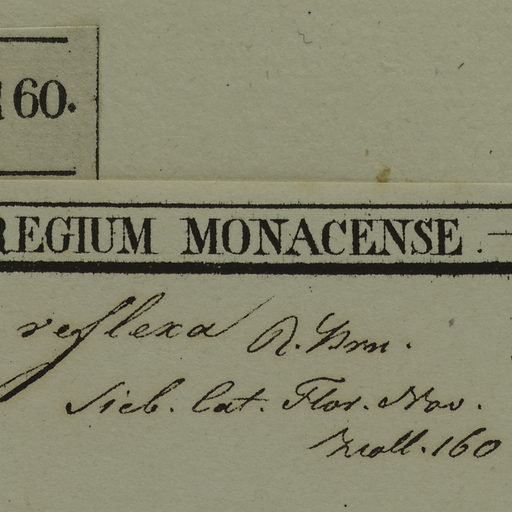 160.
REGIUM MONACENSE
reflexa R. Brn.
Sieb. Cat. Flor. Nov.
Holl. 160